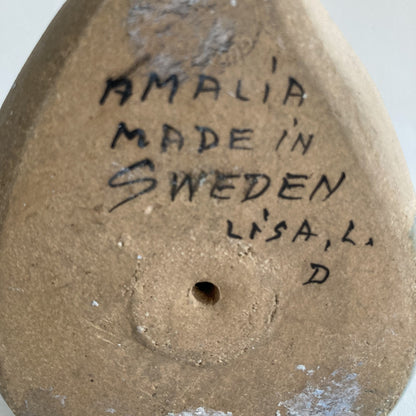 AMALiA
MADE iN
SWEDEN
LiSA, L.
D